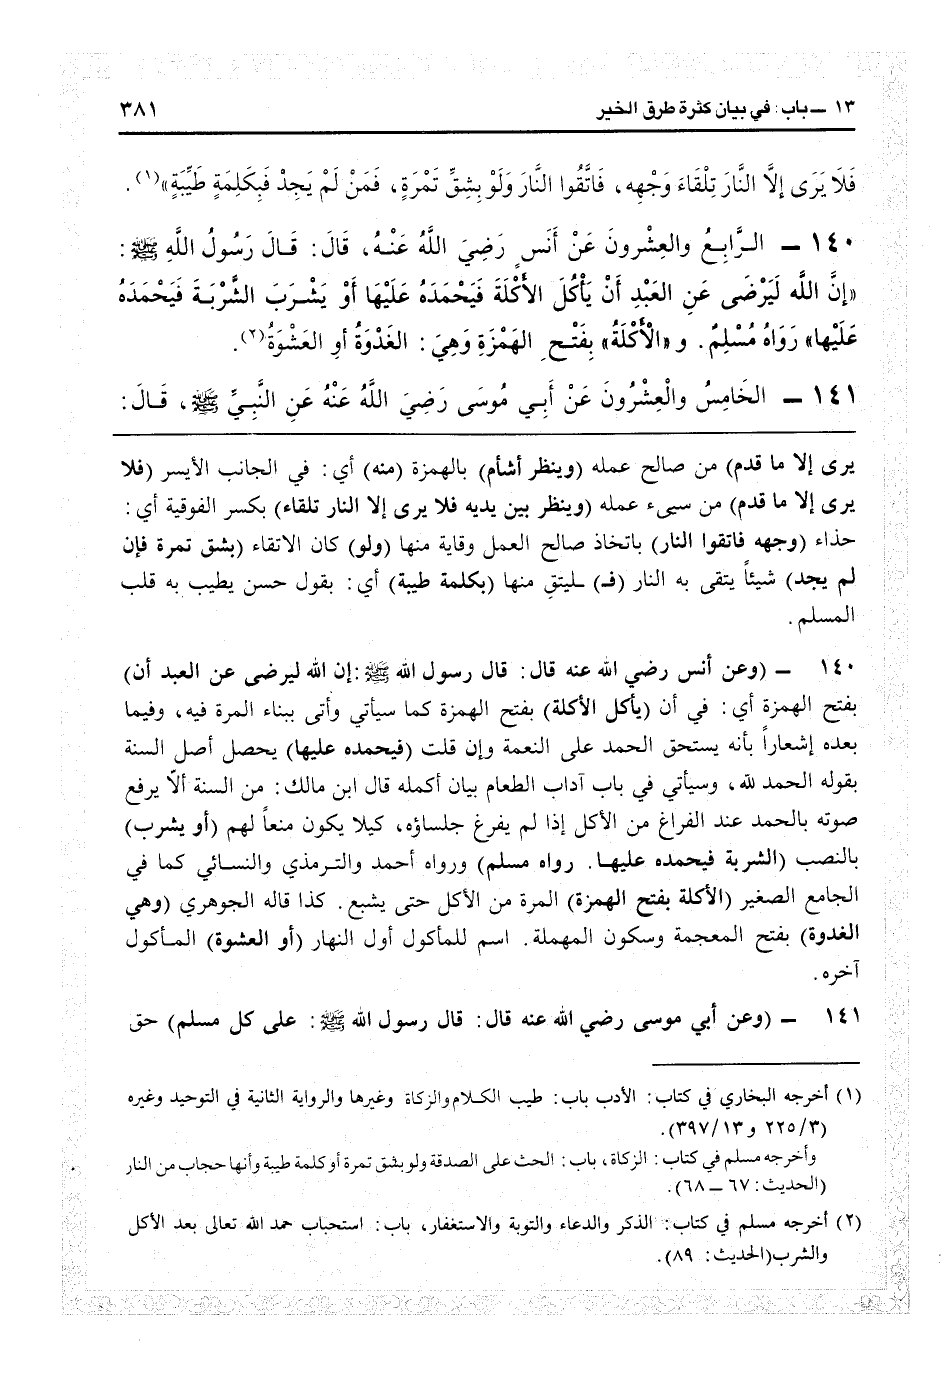 ١٣ ــ باب: في بيان كثرة طرق الخير ٣٨١
فَلَا يَرَى إلَّا النَّارَ تِلْقَاءَ وَجْهِهِ، فَاتَّقُوا النَّارَ وَلَوْ بِشِقِّ تَمْرَةٍ، فَمَنْ لَمْ يَجِدْ فَبِكَلِمَةٍ طَيِّبَةٍ»(١).
١٤٠ ــ الرَّابِعُ والعِشْرونَ عَنْ أَنَسٍ رَضِيَ اللَّهُ عَنْهُ، قَالَ: قَالَ رَسُولُ اللَّهِ ﷺ:
«إنَّ اللَّه لَيَرْضَى عَنِ العَبْدِ أَنْ يَأْكُلَ الأَكْلَةَ فَيَحْمَدَهُ عَلَيْهَا أَوْ يَشْرَبَ الشَّرْبَةَ فَيَحْمَدَهُ
عَلَيْها» رَوَاهُ مُسْلِمٌ. و «الْأَكْلَةُ» بِفَتْحِ الهَمْزَةِ وَهِيَ: الغَدْوَةُ أو العَشْوَةُ(٢).
١٤١ ــ الخَامِسُ والْعِشْرُونَ عَنْ أَبِي مُوسَى رَضِيَ اللَّهُ عَنْهُ عَنِ النَّبِيِّ ﷺ، قَالَ:
يرى إلا ما قدم) من صالح عمله (وينظر أشأم) بالهمزة (منه) أي: في الجانب الأيسر (فلا
يرى إلا ما قدم) من سيىء عمله (وينظر بين يديه فلا يرى إلا النار تلقاء) بكسر الفوقية أي:
حذاء (وجهه فاتقوا النار) باتخاذ صالح العمل وقاية منها (ولو) كان الاتقاء (بشق تمرة فإن
لم يجد) شيئاً يتقى به النار (فـ) ـليتقِ منها (بكلمة طيبة) أي: بقول حسن يطيب به قلب
المسلم.
١٤٠ ــ (وعن أنس رضي الله عنه قال: قال رسول الله ﷺ: إن الله ليرضى عن العبد أن)
بفتح الهمزة أي: في أن (يأكل الأكلة) بفتح الهمزة كما سيأتي وأتى ببناء المرة فيه، وفيما
بعده إشعاراً بأنه يستحق الحمد على النعمة وإن قلت (فيحمده عليها) يحصل أصل السنة
بقوله الحمد لله، وسيأتي في باب آداب الطعام بيان أكمله قال ابن مالك: من السنة ألاّ يرفع
صوته بالحمد عند الفراغ من الأكل إذا لم يفرغ جلساؤه، كيلا يكون منعاً لهم (أو يشرب)
بالنصب (الشربة فيحمده عليها. رواه مسلم) ورواه أحمد والترمذي والنسائي كما في
الجامع الصغير (الأكلة بفتح الهمزة) المرة من الأكل حتى يشبع. كذا قاله الجوهري (وهي
الغدوة) بفتح المعجمة وسكون المهملة. اسم للمأكول أول النهار (أو العشوة) المأكول
آخره.
١٤١ ــ (وعن أبي موسى رضي الله عنه قال: قال رسول الله ﷺ: على كل مسلم) حق
(١) أخرجه البخاري في كتاب: الأدب باب: طيب الكلام والزكاة وغيرها والرواية الثانية في التوحيد وغيره
(٢٢٥/٣ و ٣٩٧/١٣).
وأخرجه مسلم في كتاب: الزكاة، باب: الحث على الصدقة ولو بشق تمرة أو كلمة طيبة وأنها حجاب من النار
(الحديث: ٦٧ ــ ٦٨).
(٢) أخرجه مسلم في كتاب: الذكر والدعاء والتوبة والاستغفار، باب: استحباب حمد الله تعالى بعد الأكل
والشرب (الحديث: ٨٩).